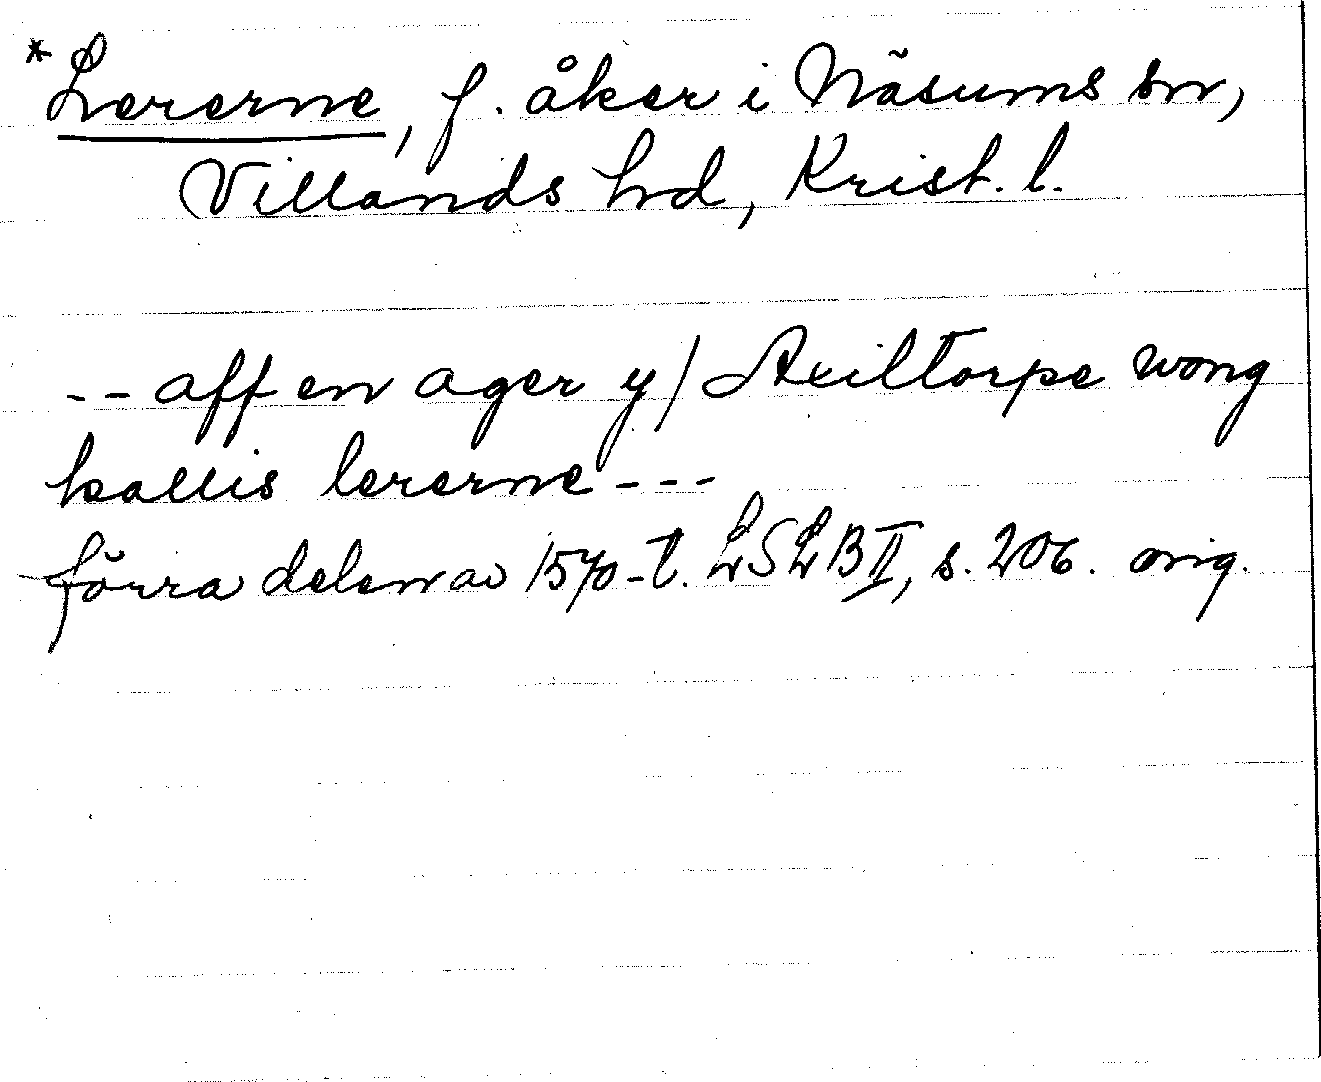 *Lererne, f. åker i Näsums sn,
Villands hd, Krist. l.
-- aff en ager y/ Axiltorpe wong
kallis lererne ---
förra delen av 1570-t. LSLB II, s. 206. orig.